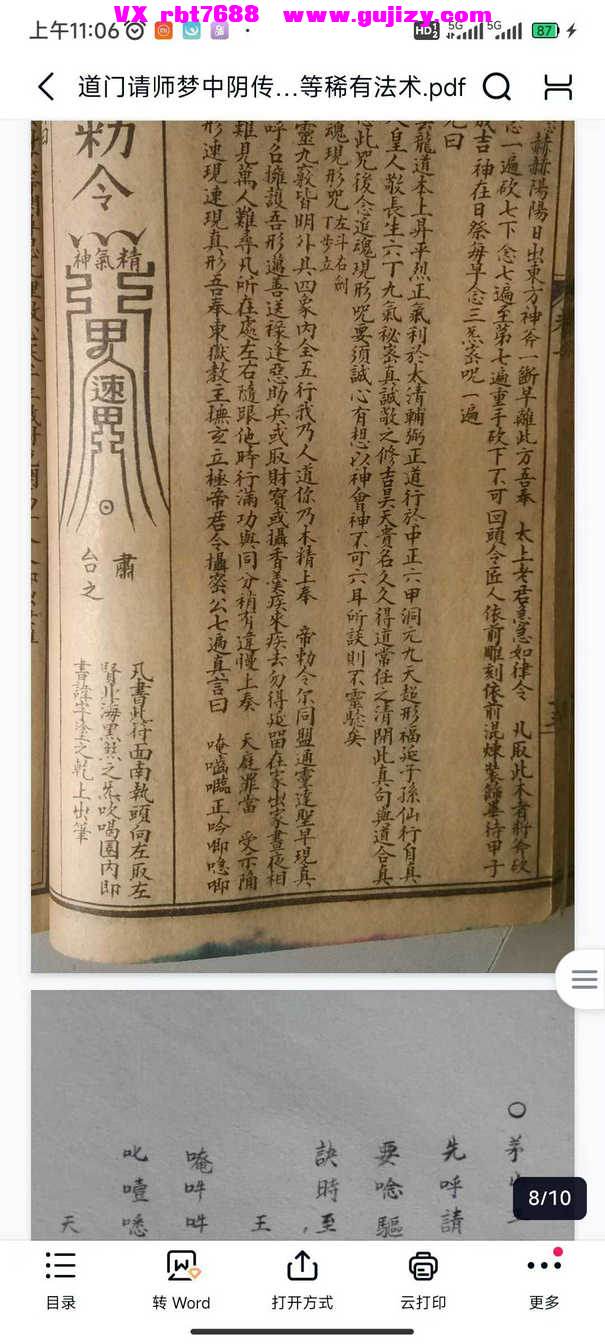 VX rbt7688 www.gujizy.com
上午11:06
HD 5G 5G 87
道门请师梦中阴传...等稀有法术.pdf
赫赫陽陽日出東方神斧一斷早離此方吾奉 太上老君急急如律令 凡取此木者將斧砍
念一遍砍七下念七遍至第七遍重手砍下不可回頭令匠人依前雕刻依前混煉裝飾畢待甲子
吉神在日祭每早念三炁密咒一遍
咒曰
龍道本上昇平烈正氣利於太清輔弼正道行於中正六甲洞元九天超形福延子孫仙行自具
人皇人敬長生六丁九氣秘密真誠敬之修吉昊天賞名久久得道常任之清閑此真句與道合真
念此咒後念追魂現形咒要須誠心有想以神會神不可六耳所談則不靈驗矣
魂現形咒 左斗右劍 丁步立
靈九竅皆明外具四象內全五行我乃人道你乃木精上奉 帝勅令尔同盟通靈達聖早現真
呼名擁護吾形遇善送祿逢惡助兵或取財寶或攝香美疾來疾去勿得延留在家出家晝夜相
難見萬人難尋凡所在處左右隨跟他時行滿功與同分稍有違慢上奏 天庭罪當 受示陏
形速現速現真形吾奉東嶽教主撫玄立極帝君令攝密公七遍真言曰 唵嚙𠾐正吟唧噁唧
勅令
神氣精
速
肅
台之
凡書此符面南執頭向左取左
書諱字塗之乾上出筆
○茅山
先呼請
要唸驅
訣時至
王
唵吽吽
叱噎
天
8/10
目录
转 Word
打开方式
云打印
更多